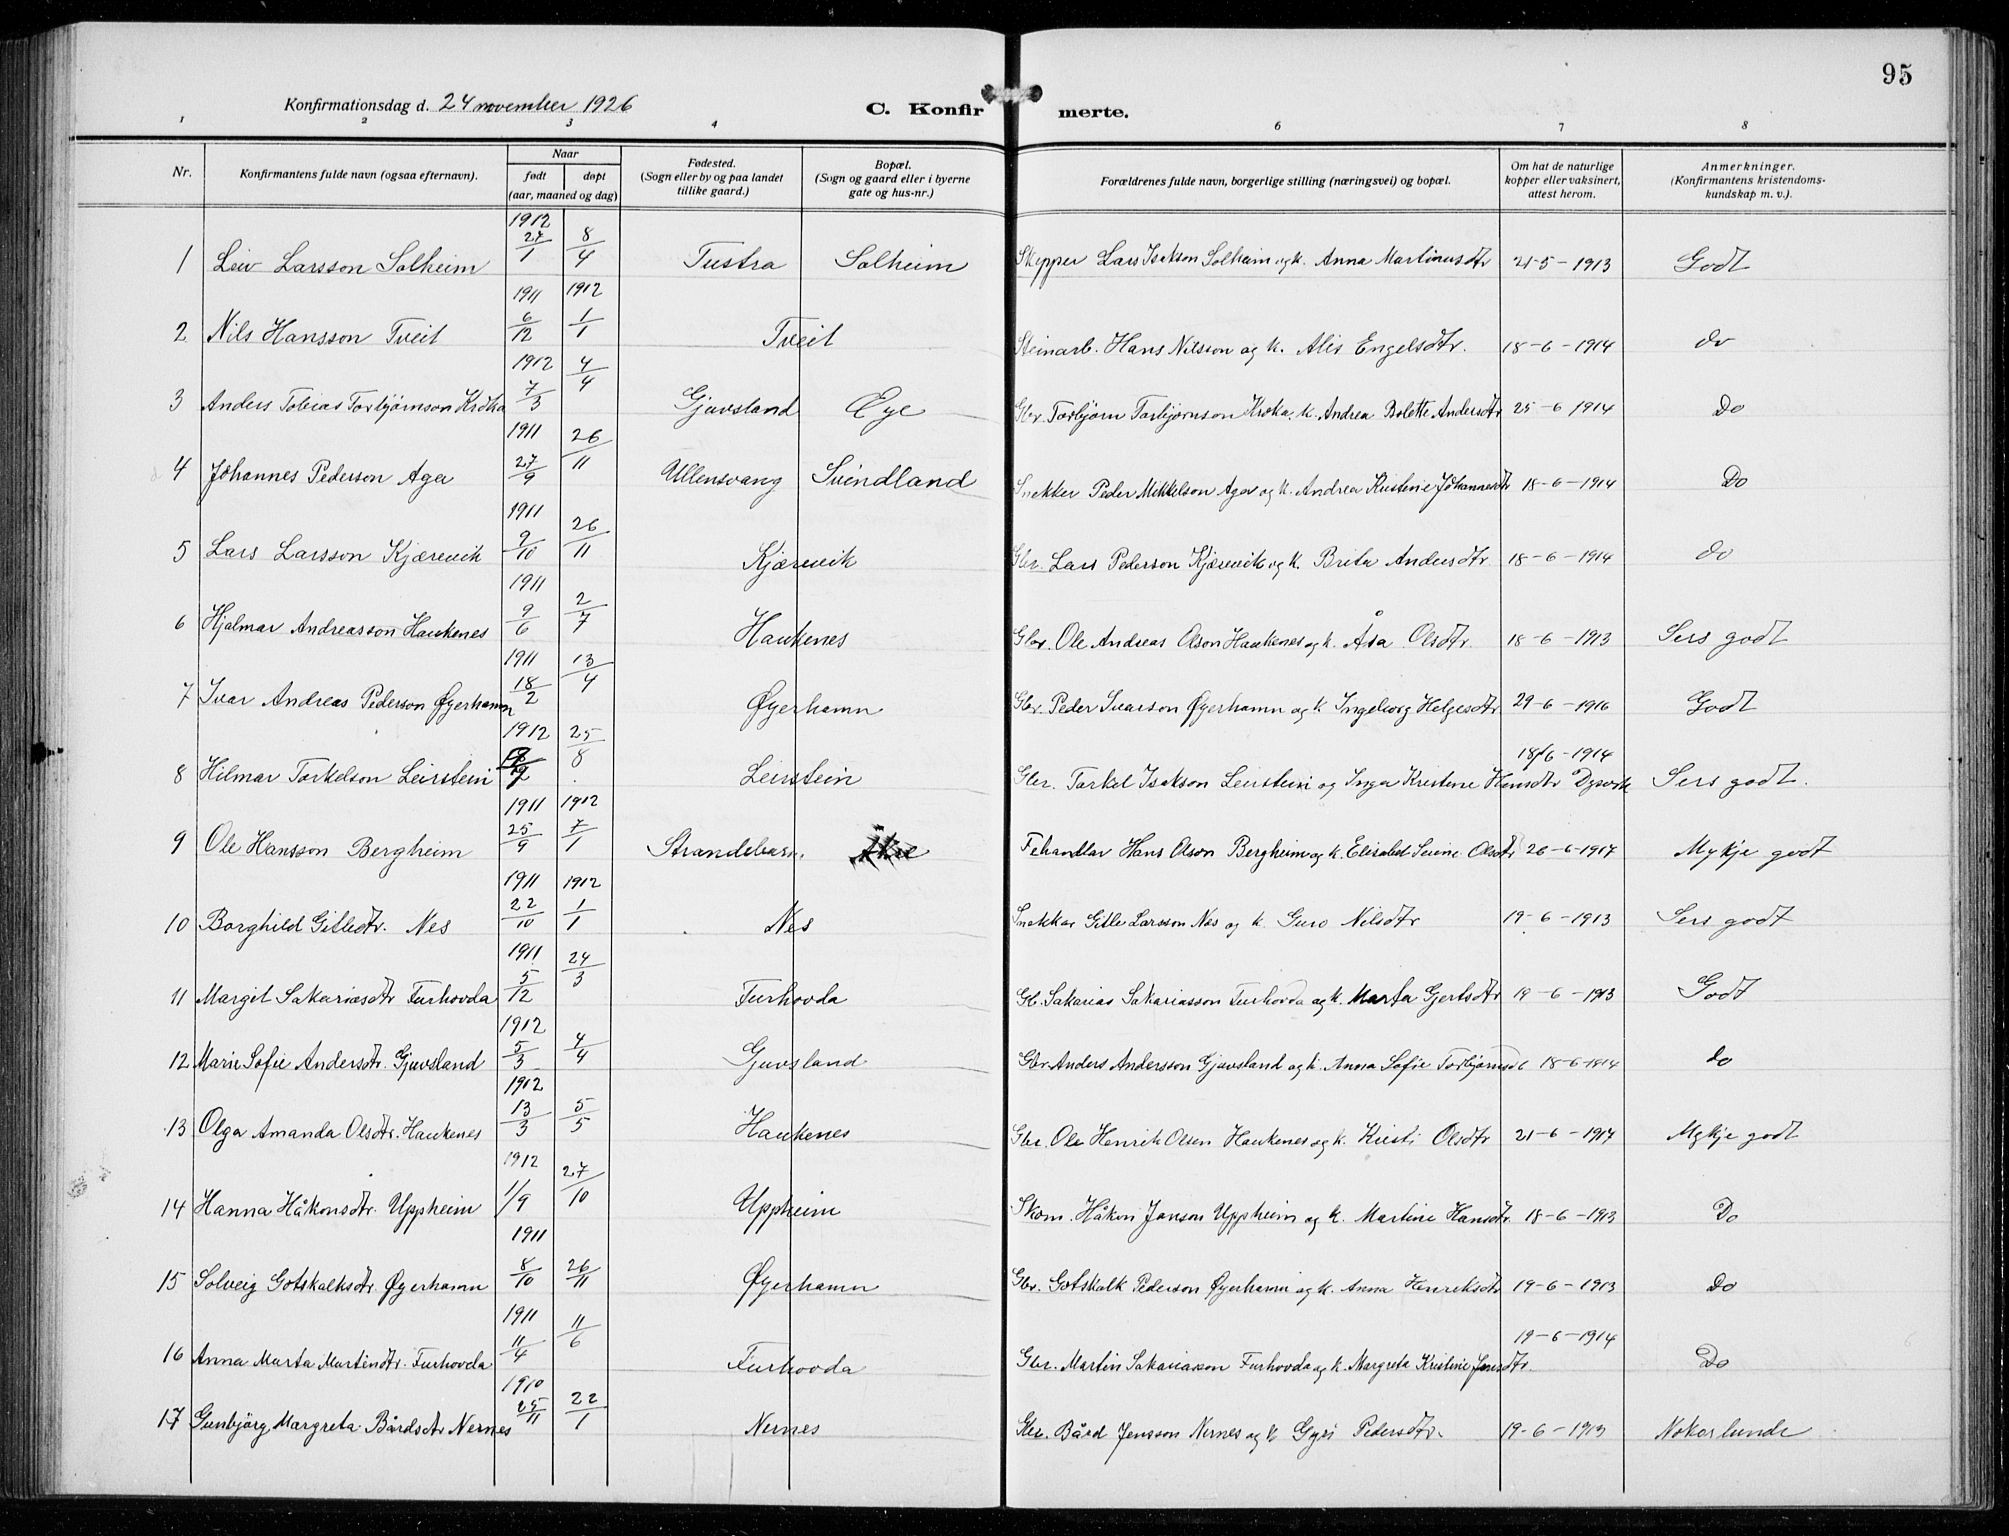 95
Konfirmationsdag d. 24 november 1926
C. Konfirmerte.
1 2 3 4 6 7 8
Nr. Konfirmantens fulde navn (ogsaa efternavn). Naar født døpt (aar, maaned og dag) Fødested. (Sogn eller by og paa landet tillike gaard.) Bopæl. (Sogn og gaard eller i byerne gate og hus-nr.) Forældrenes fulde navn, borgerlige stilling (næringsvei) og bopæl. Om hat de naturlige kopper eller vaksinert, attest herom. Anmerkninger. (Konfirmantens kristendomskundskap m. v.).
1 Leiv Larsson Solheim 1912 27/1 8/4 Tustra Solheim Skipper Lars Isakson Solheim og k. Anna Martinusdtr 21-5-1913 Godt
2 Nils Hansson Tveit 1911 6/12 1912 1/1 Tveit Steinarb. Hans Nilsson og k. Alis Engelsdtr. 18-6-1914 do
3 Anders Tobias Torbjørnson Kroka 1912 7/3 4/4 Gjuvsland Øye Gbr. Torbjørn Torbjørnson Kroka, k. Andrea Bolette Andersdtr 25-6 1914 Do
4 Johannes Pederson Aga 1911 27/9 26/11 Ullensvang Svindland Snekker Peder Mikkelson Aga og k. Andrea Kristine Johannesdtr 18-6-1914 Do
5 Lars Larsson Kjærevik 1911 9/10 26/11 Kjærevik Gbr. Lars Pederson Kjærevik og k. Brita Andersdtr 18-6-1914 do
6 Hjalmar Andreasson Haukenes 1911 9/6 2/7 Haukenes Gbr. Ole Andreas Olson Haukenes og k. Åsa Olsdtr. 18-6-1913 Sers godt
7 Ivar Andreas Pederson Øyerhamn 1911 18/2 13/4 Øyerhamn Gbr. Peder Ivarson Øyerhamn og k. Ingeborg Helgesdtr 29-6-1916 Godt
8 Hilmar Torkelson Leirstein 1912 25/8 Leirstein Gbr. Torkel Isakson Leirstein og Inga Kristine Hansdtr Dysvik 18/6-1914 Sers godt.
9 Ole Hansson Bergheim 1911 25/9 1912 7/1 Strandebarm. Fehandlar Hans Olson Bergheim og k. Elisabet Serine Olsdtr 26-6-1917 Mykje godt
10 Borghild Gitledtr. Nes 1911 22/10 1912 1/1 Nes Snekkar Gitle Larsson Nes og k. Guro Nilsdtr 19-6-1913 Sers godt
11 Margit Sakariasdtr Furhovda 1911 5/12 24/3 Furhovda Gb. Sakarias Sakariasson Furhovda og k. Marta Gjertsdtr 19-6-1913 Godt
12 Marie Sofie Andersdtr. Gjuvsland 1912 5/3 4/4 Gjuvsland Gbr Anders Andersson Gjuvsland og k. Anna Sofie Torbjørnsd 18-6-1914 do
13 Olga Amanda Olsdtr. Haukenes 1912 13/3 5/5 Haukenes Gbr. Ole Henrik Olsen Haukenes og k. Kristi Olsdtr 21-6-1917 Mykje godt
14 Hanna Håkonsdtr. Uppheim 1912 1/9 27/10 Uppheim Skom. Håkon Jonson Uppheim og k. Martine Hansdtr. 18-6-1913 Do
15 Solveig Gotskalksdtr. Øyerhamn 1911 8/10 26/11 Øyerhamn Gbr. Gotskalk Pederson Øyerhamn og k. Anna Henriksdtr 19-6-1913 Do
16 Anna Marta Martinsdtr. Furhovda 1911 11/4 11/6 Furhovda Gbr. Martin Sakariasson Furhovda og k. Margreta Kristine Jensdtr. 19-6-1914 Do
17 Gunbjörg Margreta Bårdsdtr Nernes 1910 25/11 22/1 Nernes Gbr. Bård Jensson Nernes og k Gyri Pedersdtr. 19-6-1913 Nokorlunde